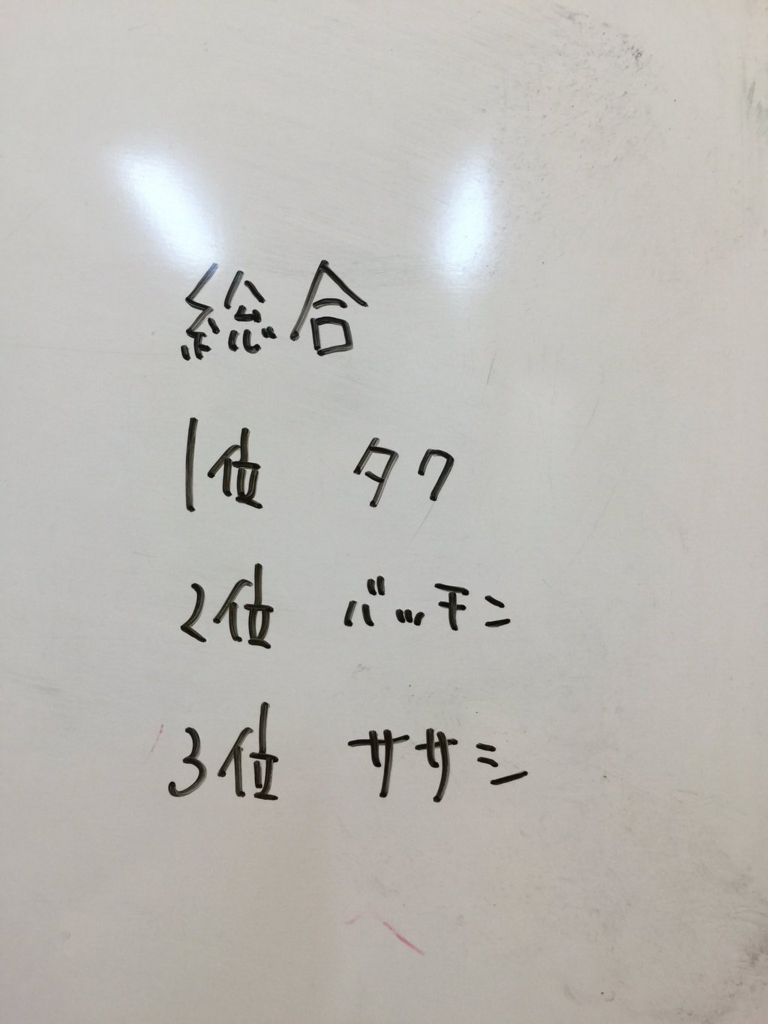 総合
1位 タク
2位 バッチン
3位 ササミ